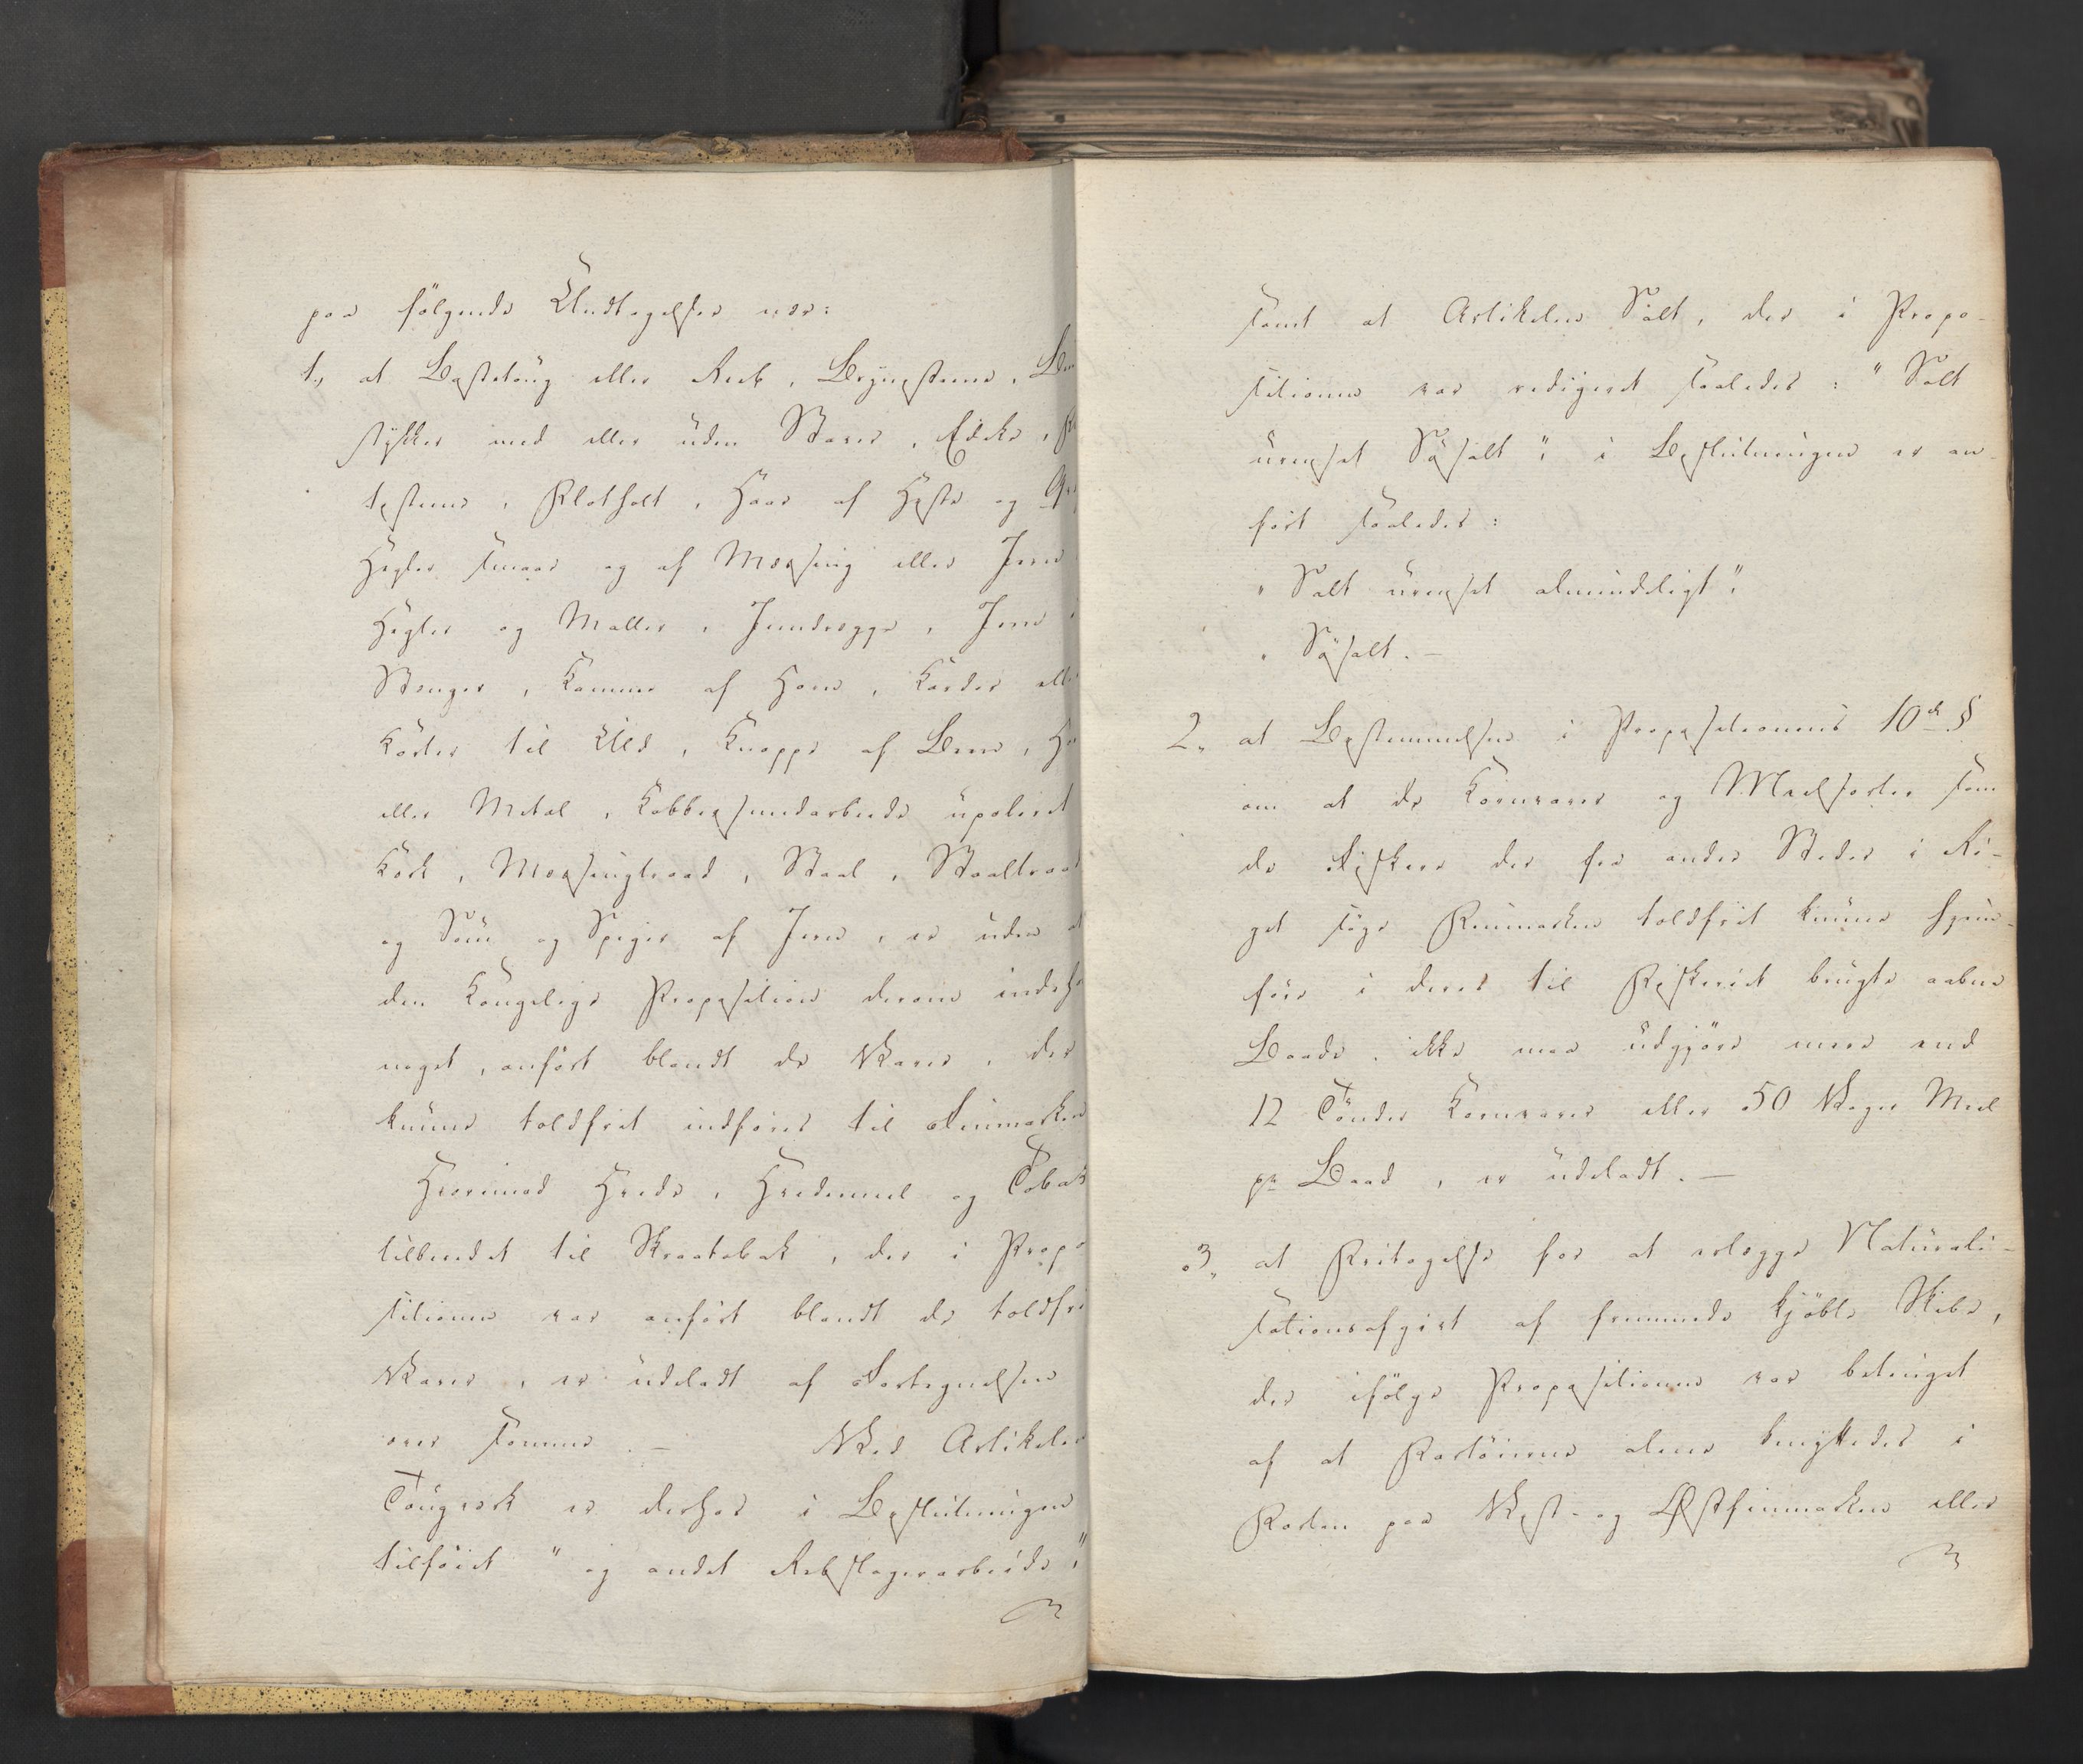 paa følgende Undtagelser nær:
1, at Bastetoug eller Reeb, Brynestene,
stykker med eller uden Staver, Edike,
testene, Klapholt, Haar af Heste og
Hegler smaae og af Messing eller Jern
Hegler og Maller, Jerndragge, Jern i
Stænger, Kamme af Horn, Karder eller
Karter til Uld, Knappe af Been,
eller Metal, Kobbersmedarbeide upoleret
Kork, Messingtraad, Staal, Staaltraad
og Søm og Spiger af Jern, er uden at
den Kongelige Proposition derom indeholdt
noget, anført blandt de Varer, der
kunne toldfrit indføres til Finmarken
Hvorimod Hvede, Hvedemeel og Tobak
tilberedet til Skraatobak, der i Propo
sitionen var anført blandt de toldfri
Varer, er udeladt af Fortegnelsen
over samme. — Ved Artikelen
Tougværk er derhos i Beslutningen
tilføiet " og andet Rebslagerarbeide",
samt at Artikelen Salt, der i Propo-
sitionen var redigeret saaledes: " Salt
urenset Søsalt", i Beslutningen er an-
ført saaledes:
" Salt urenset almindeligt",
" Søsalt. —
2, at Bestemmelsen i Propositionens 10de §
om at de Kornvarer og Meelsorter som
de Fiskere der fra andre Steder i Ri-
get søge Finmarken toldfrit kunne hjem-
føre i deres til Fiskeriet brugte aabne
Baade, ikke maa udgjøre mere end
12 Tønder Kornvarer eller 50 Voger Meel
pr Baad, er udeladt. —
3, at Fritagelse for at erlægge Naturali-
sationsafgivt af fremmede kjøbte Skibe,
der ifølge Propositionen var betinget
af at Fartøierne alene benyttedes i
Farten paa Vest- og Østfinmarken eller